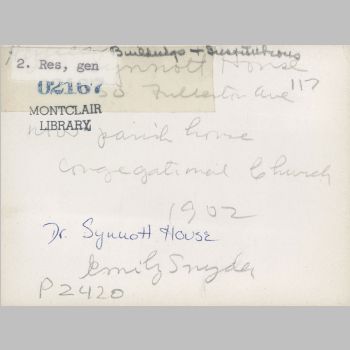 Buildings + Institutions
2. Res, gen
Synnott House
117
02167
Fullerton Ave
MONTCLAIR
LIBRARY
now parish house
Congregational Church
1902
Dr. Synnott House
Emily Snyder
P2420